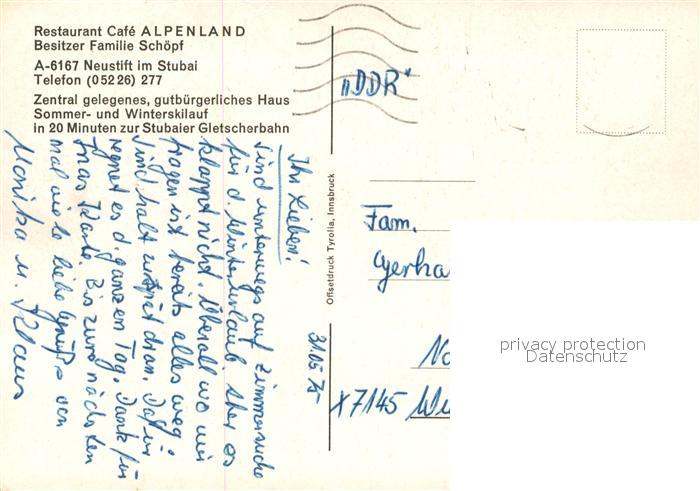 Restaurant Café ALPENLAND
Besitzer Familie Schöpf
A-6167 Neustift im Stubai
Telefon (05226) 277
Zentral gelegenes, gutbürgerliches Haus
Sommer- und Winterskilauf
in 20 Minuten zur Stubaier Gletscherbahn
Ihr Lieben!
sind unterwegs auf Zimmersuche
für d. Winterurlaub. Aber es
klappt nicht. Überall wo wir
fragen ist bereits alles weg.
Sind halt zu spät dran. Dafür
regnet es d. ganzen Tag. Dank für
Karte. Bis zum nächsten
mal viele liebe Grüße von
Monika u. Klaus
31.05.75
Offsetdruck Tyrolia, Innsbruck
"DDR"
Fam.
Gerha
X7145
privacy protection
Datenschutz